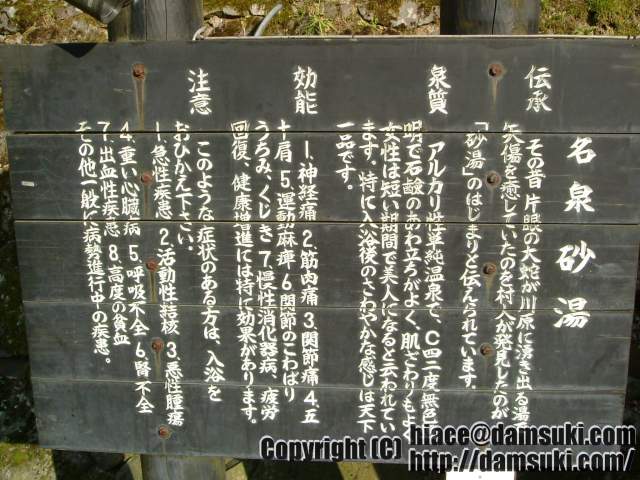 名泉砂湯
伝承
その昔 片眼の大蛇が川原に湧き出る湯で
矢傷を癒していたのを村人が発見したのが
「砂湯」のはじまりと伝えられています。
泉質
アルカリ性単純温泉で、C四二度 無色
明で石鹸のあわ立ちがよく、肌ざわりもよ
女性は短い期間で美人になると云われてい
ます。特に入浴後のさわやかな感じは天下
一品です。
効能
1.神経痛 2.筋肉痛 3.関節痛 4.五
十肩 5.運動麻痺 6関節のこわばり
うちみ、くじき 7.慢性消化器病、疲労
回復、健康増進には特に効果があります。
注意
このような症状のある方は、入浴を
おひかえ下さい。
1.急性疾患 2.活動性結核 3.悪性腫瘍
4.重い心臓病 5.呼吸不全 6.腎不全
7.出血性疾患 8.高度の貧血
その他一般に病勢進行中の疾患。
Copyright (C) hiace@damsuki.com
http://damsuki.com/